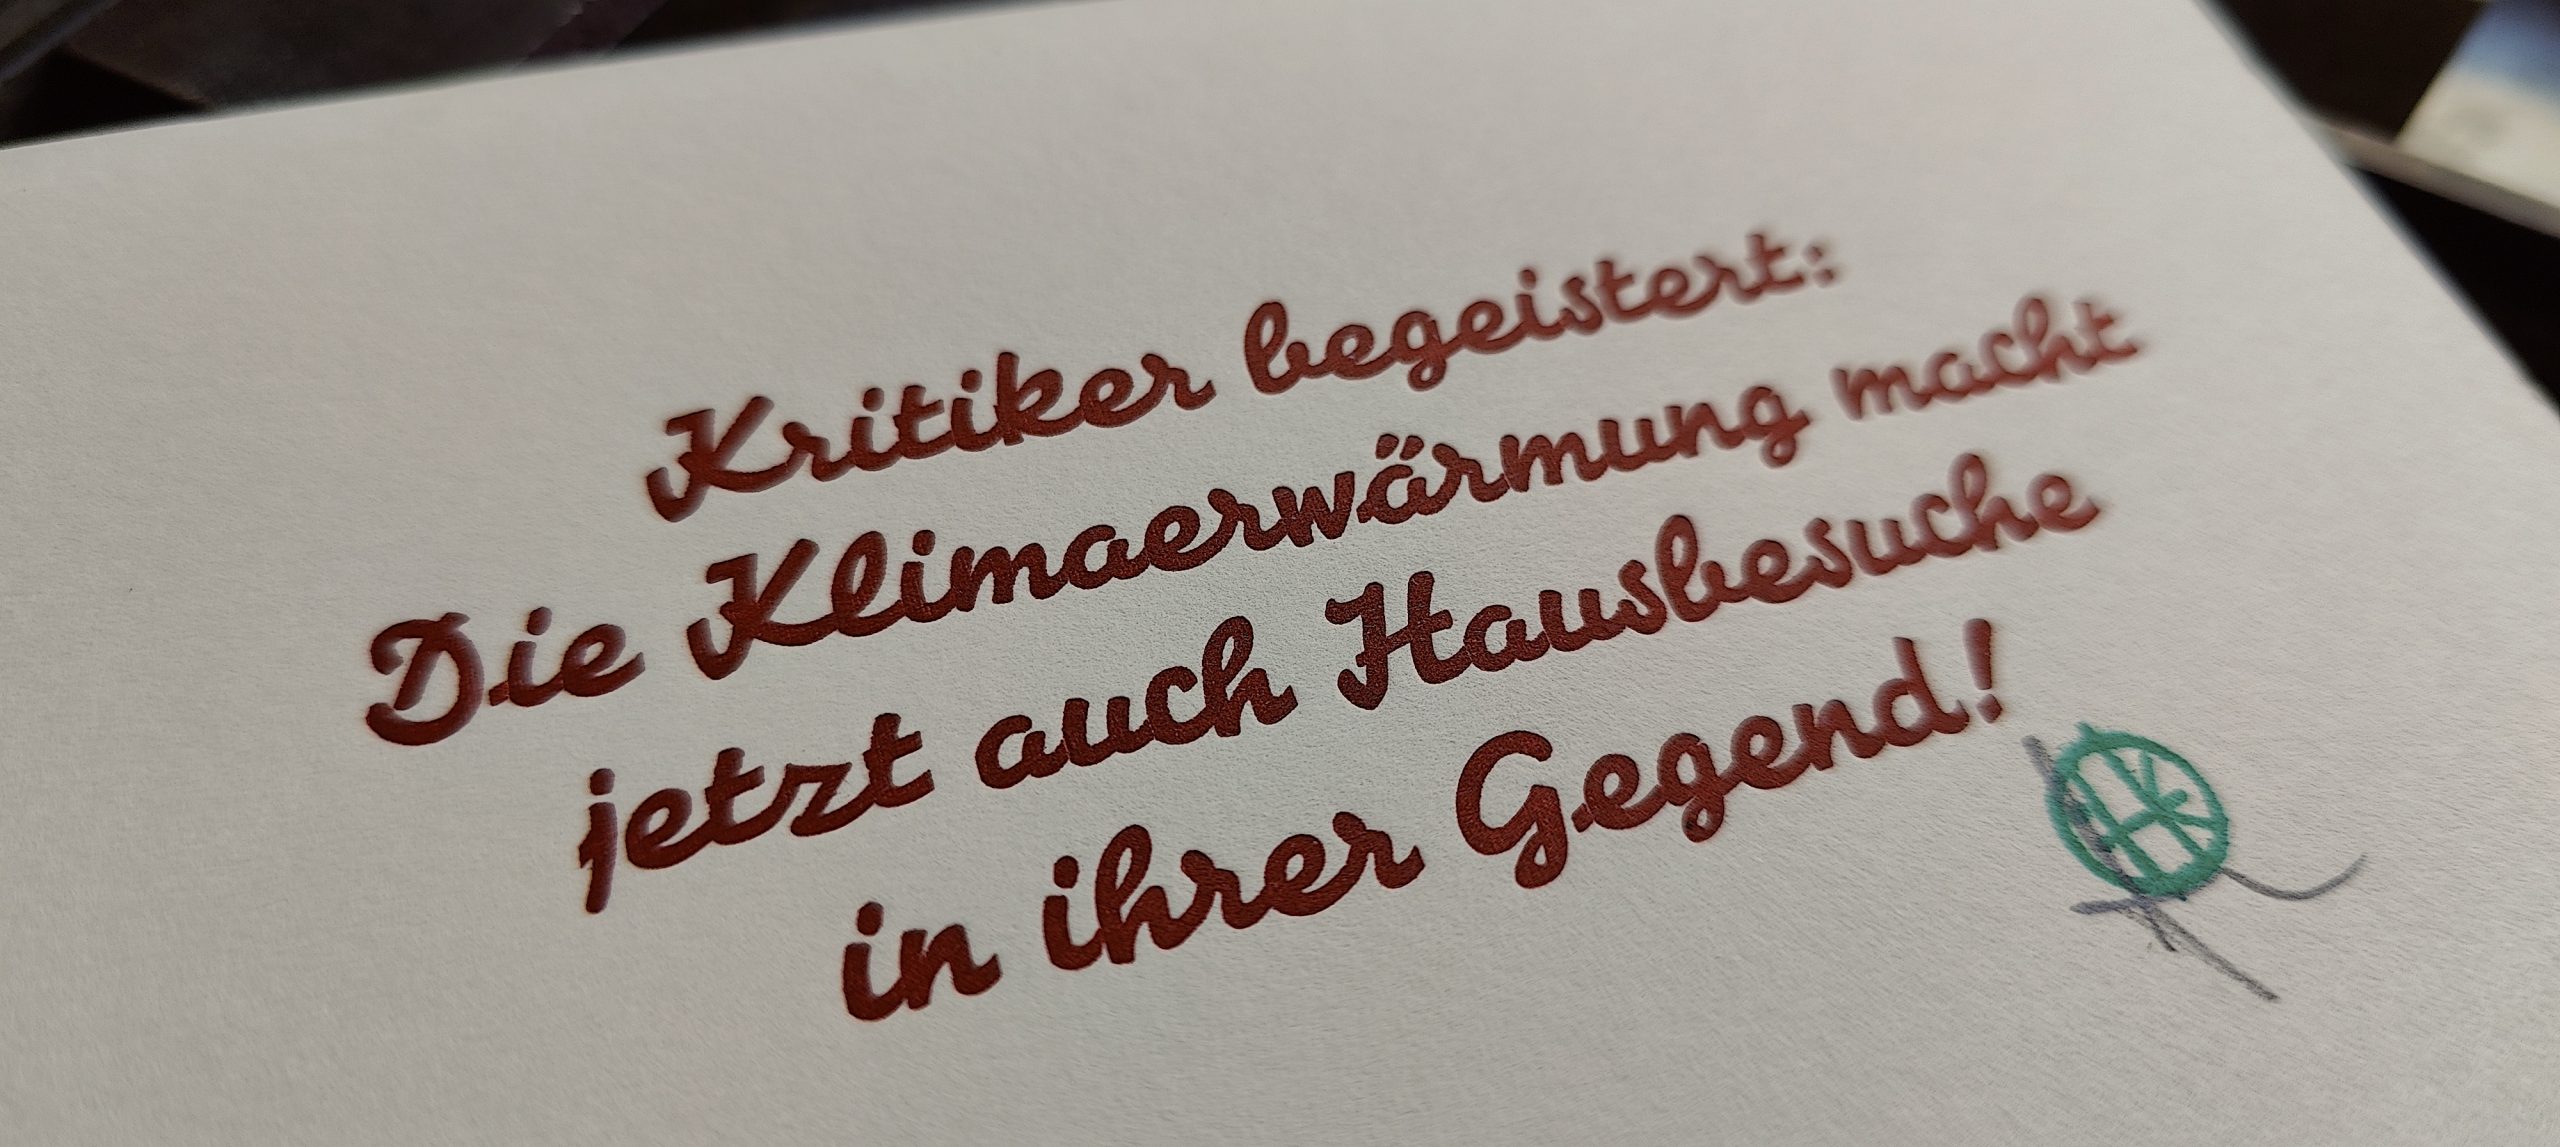 Kritiker begeistert:
Die Klimaerwärmung macht
jetzt auch Hausbesuche
in ihrer Gegend!